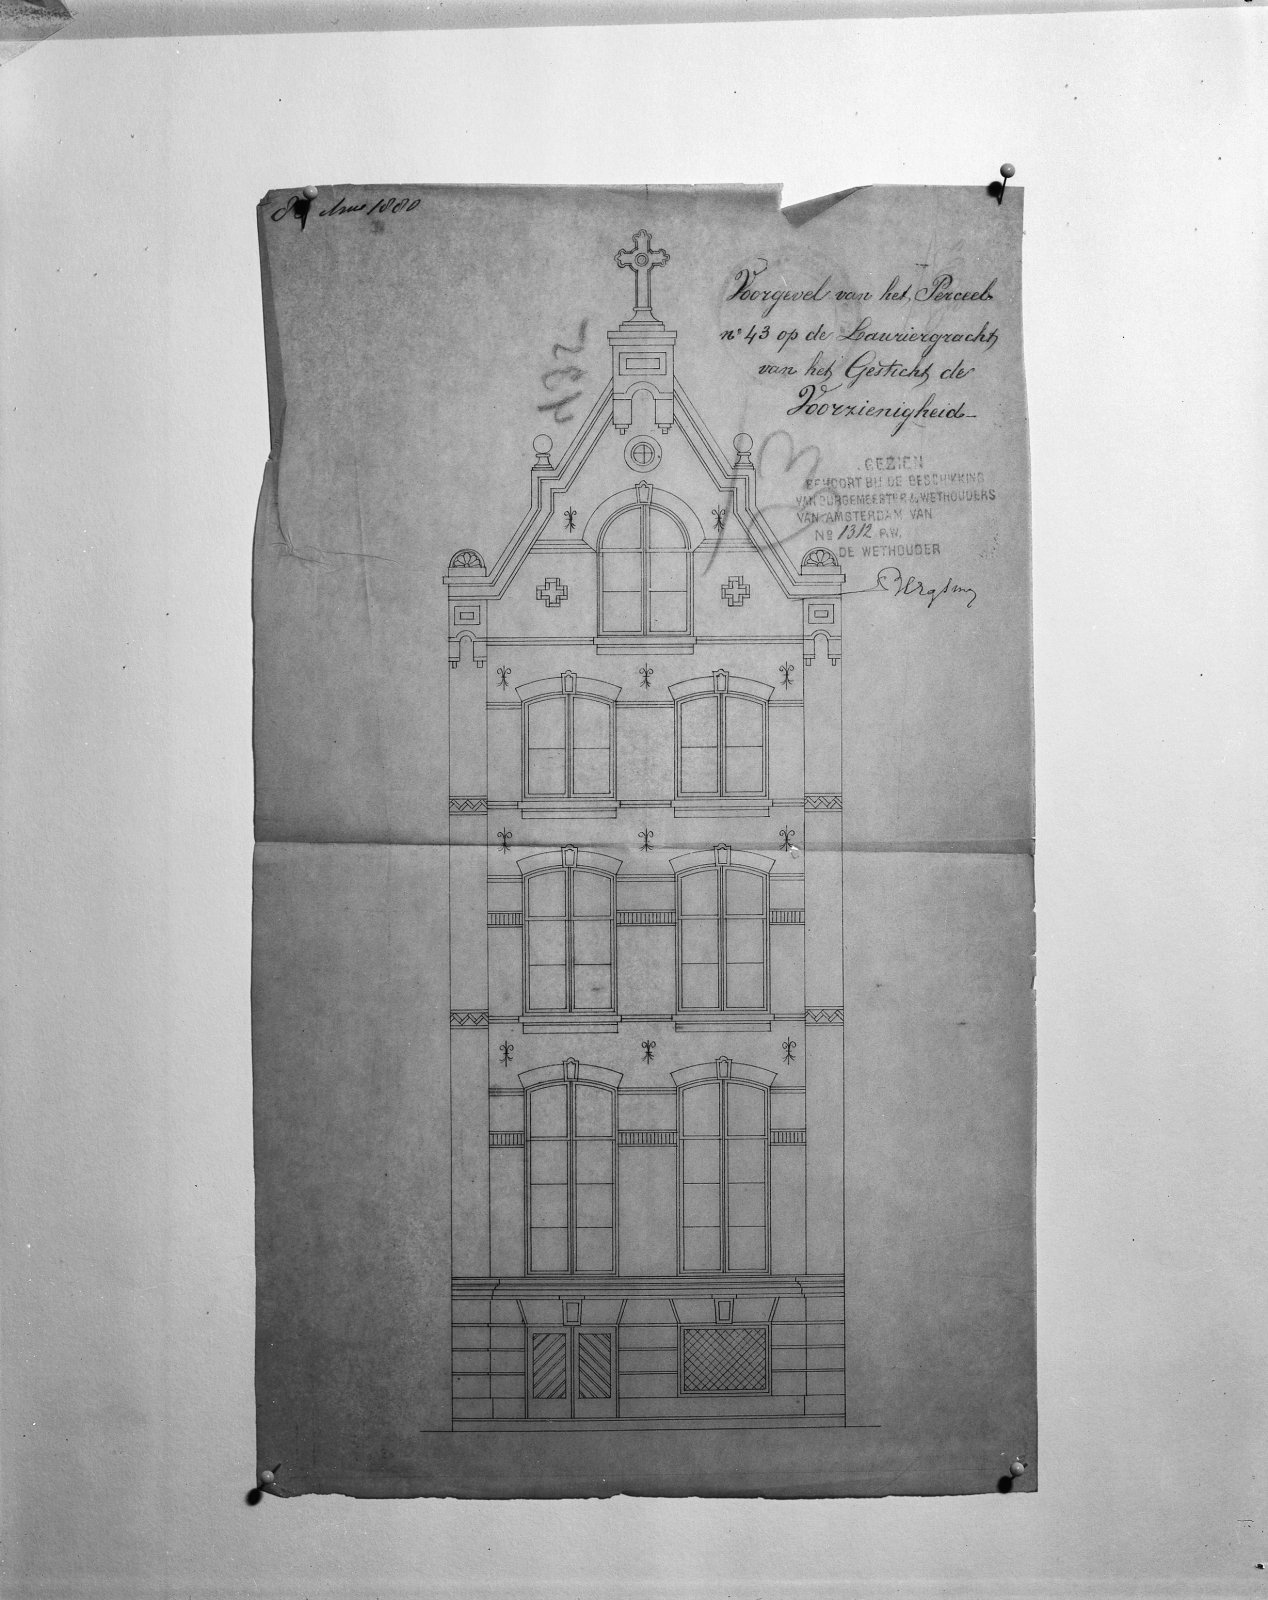 1880
132
Voorgevel van het Perceel
nº 43 op de Lauriergracht
van het Gesticht de
Voorzienigheid
GEZIEN
BEHOORT BIJ DE BESCHIKKING
VAN BURGEMEESTER & WETHOUDERS
VAN AMSTERDAM VAN
Nº 1312 P.W.
DE WETHOUDER